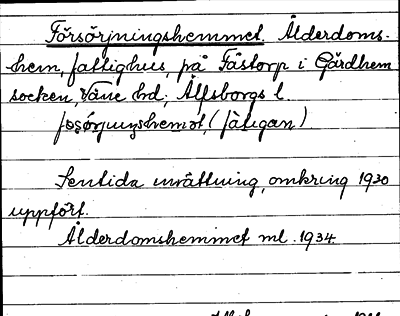 Försörjningshemmet, Ålderdoms-
hem, fattighus, på Fåstorp i Gärdhem
socken, Väne hd, Älfsborgs l.
(fàtigan)
Sentida inrättning, omkring 1930
uppfört.
Ålderdomshemmet ml. 1934